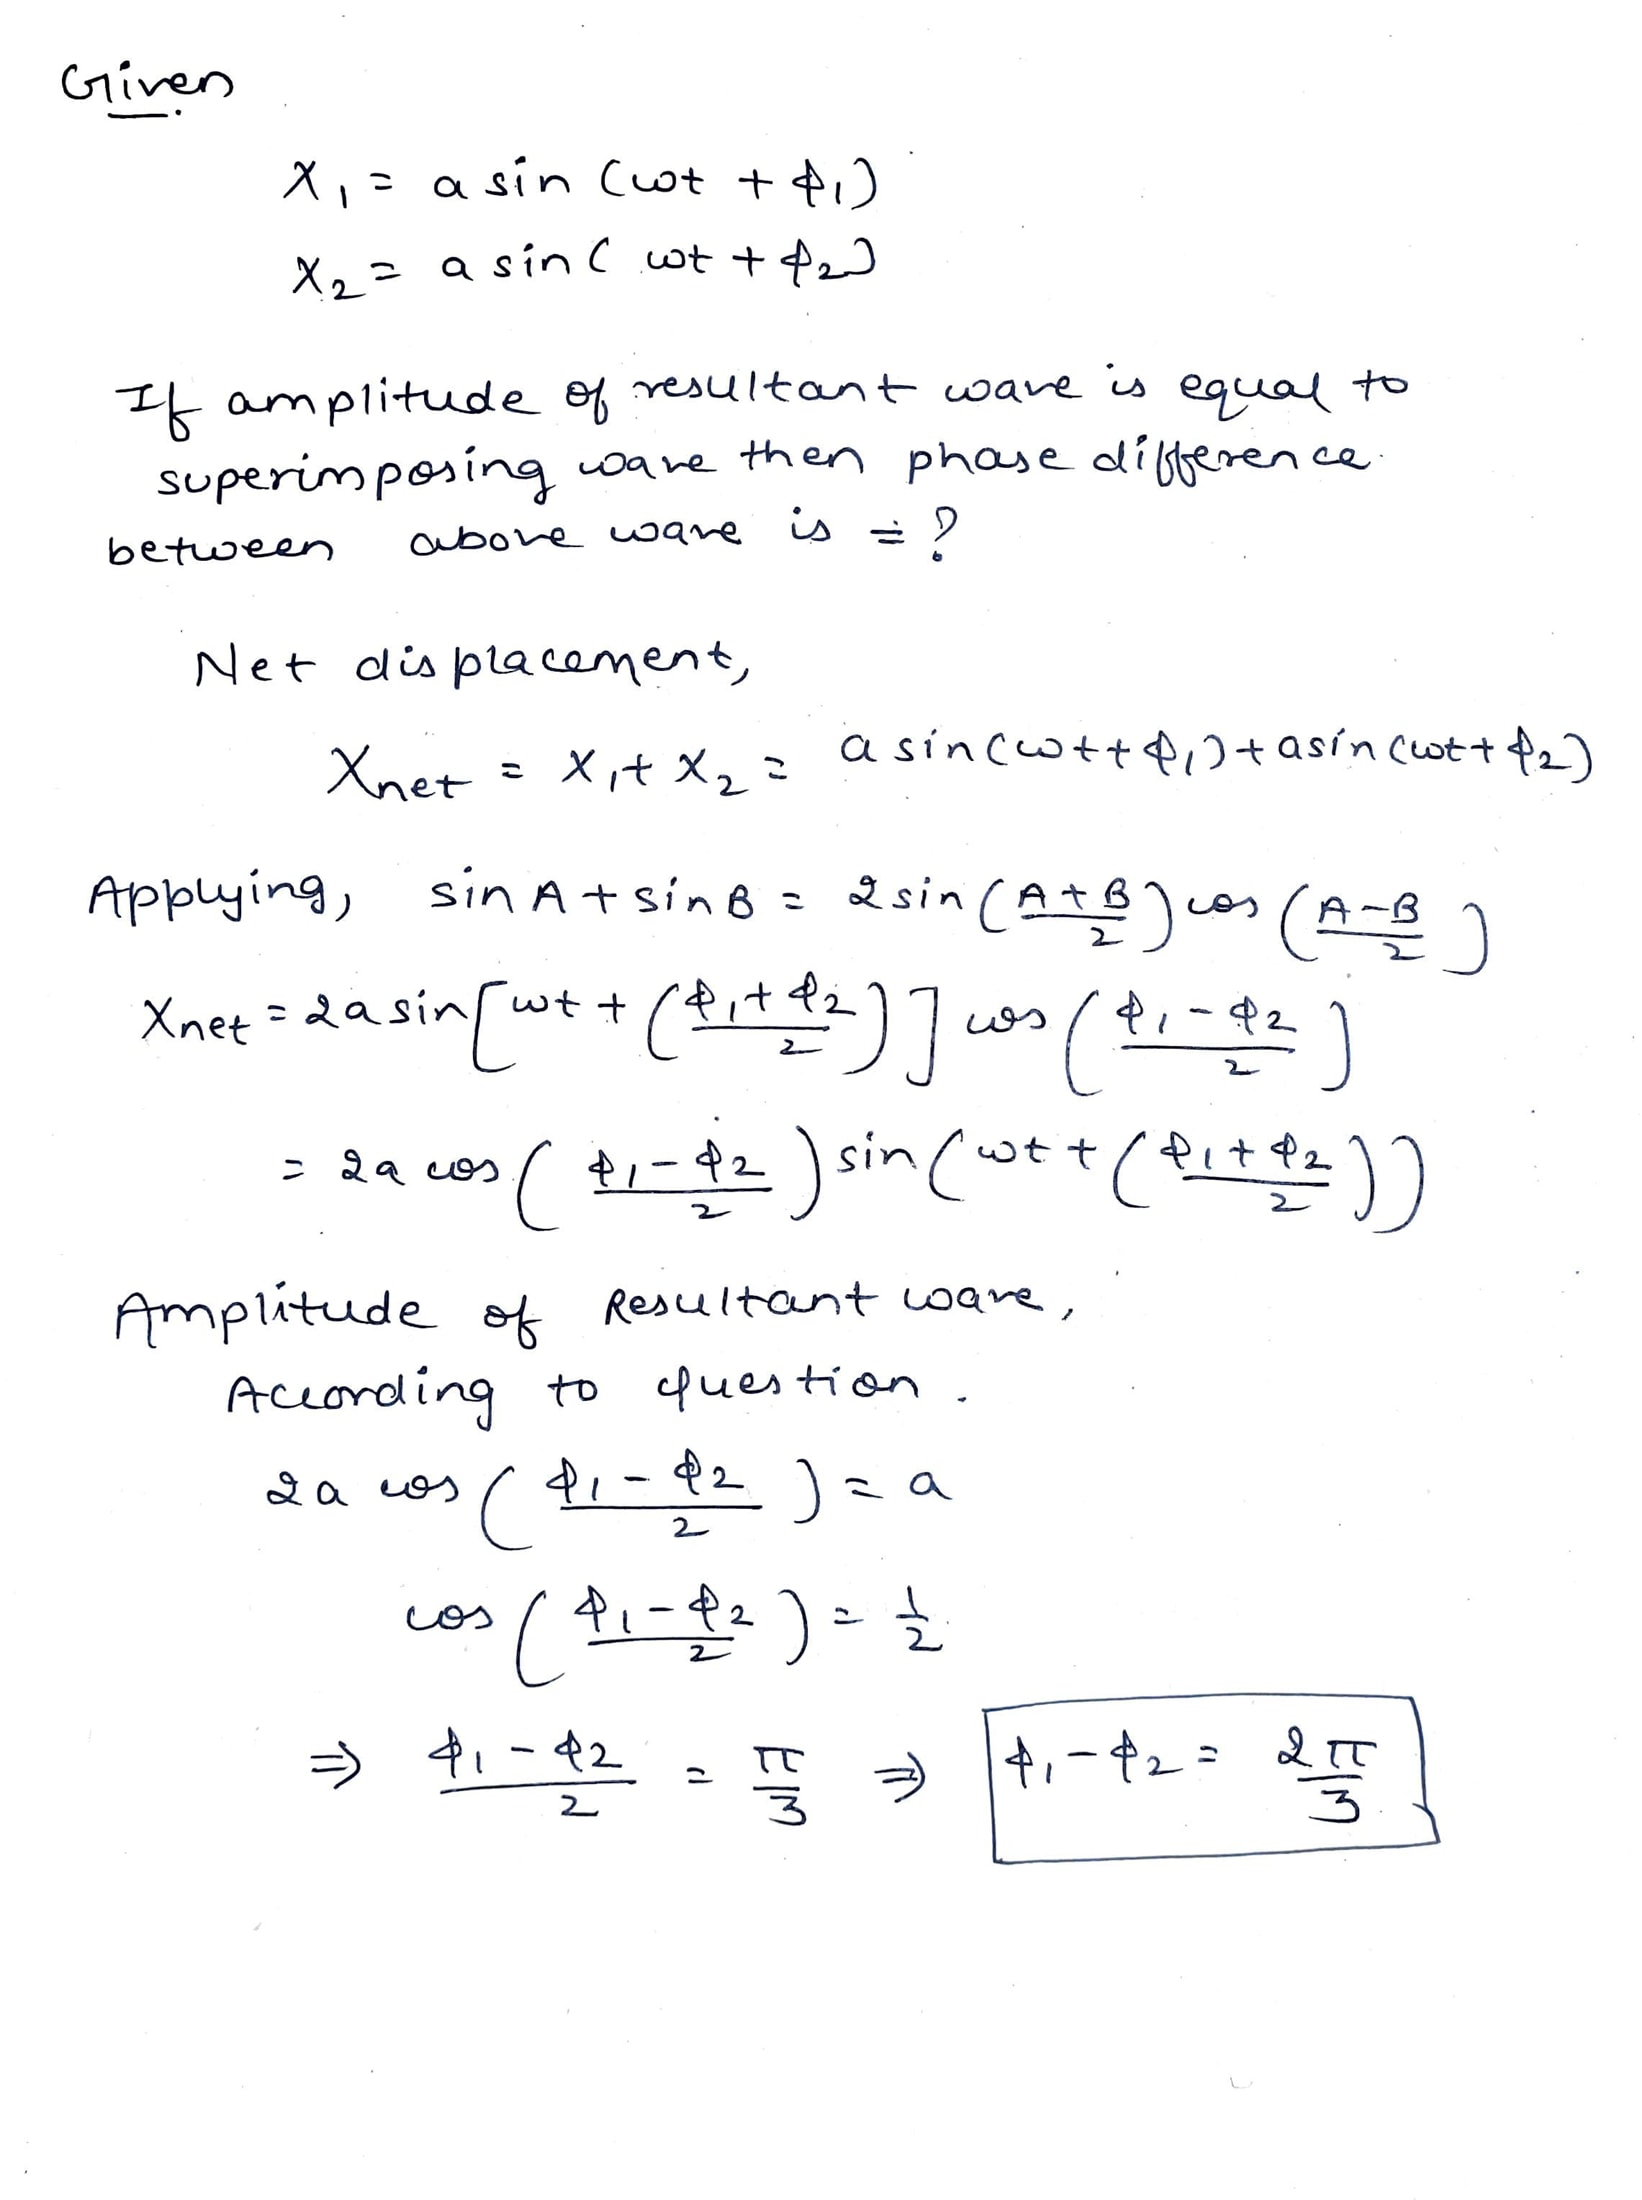 Given
x₁ = a sin (ωt + φ₁)
x₂ = a sin ( ωt + φ₂)
If amplitude of resultant wave is equal to
superimposing wave then phase difference
between above wave is = ?
Net displacement,
Xnet = x₁ + x₂ = a sin(ωt + φ₁) + a sin(ωt + φ₂)
Applying, sin A + sin B = 2 sin ((A+B)/2) cos ((A-B)/2)
Xnet = 2a sin [ωt + ((φ₁+φ₂)/2)] cos ((φ₁-φ₂)/2)
= 2a cos ((φ₁-φ₂)/2) sin (ωt + ((φ₁+φ₂)/2))
Amplitude of Resultant wave,
According to question.
2a cos ((φ₁-φ₂)/2) = a
cos ((φ₁-φ₂)/2) = 1/2
⇒ (φ₁-φ₂)/2 = π/3 ⇒ φ₁-φ₂ = 2π/3